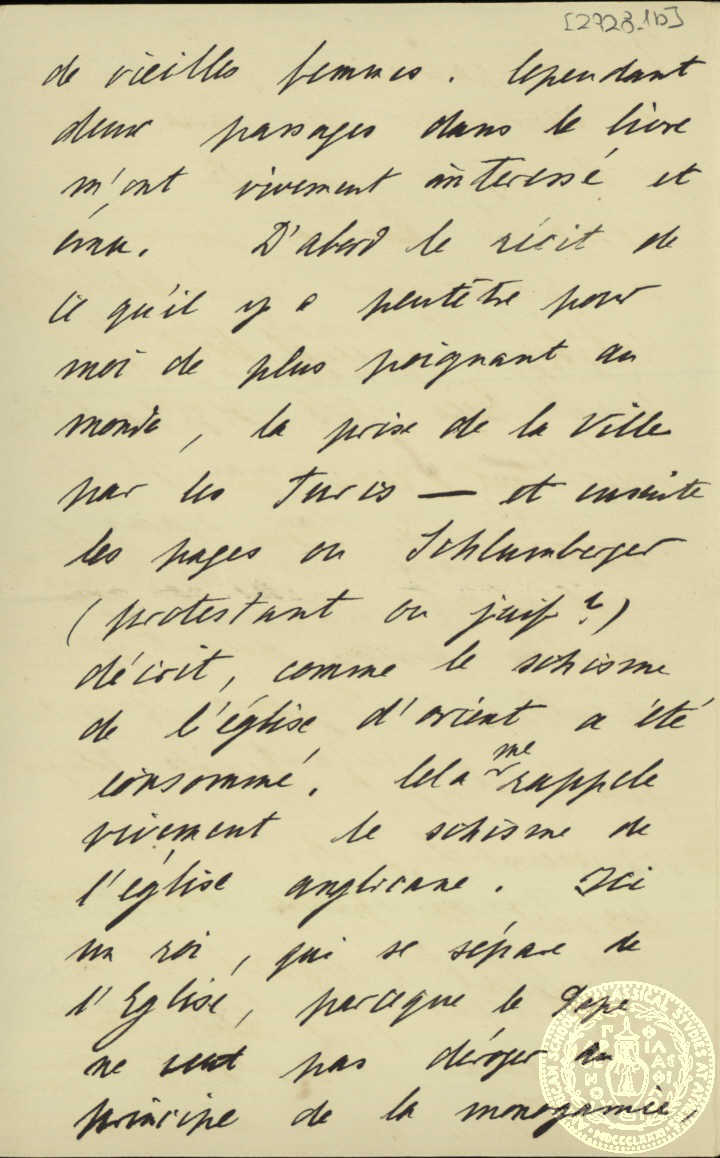 [2923_1b]
de vieilles femmes. Cependant
deux passages dans le livre
m'ont vivement intéressé et
ému. D'abord le récit de
ce qu'il y a peutêtre pour
moi de plus poignant au
monde, la prise de la Ville
par les Turcs — et ensuite
les pages ou Schlumberger
(protestant ou juif?)
décrit, comme le schisme
de l'église d'orient a été
consommé. Cela me rappele
vivement le schisme de
l'église anglicane. Ici
un roi, qui se sépare de
l'Eglise, parceque le Pape
ne veut pas déroger au
principe de la monogamie,
AMERICAN SCHOOL OF CLASSICAL STUDIES AT ATHENS
MDCCCLXXXI